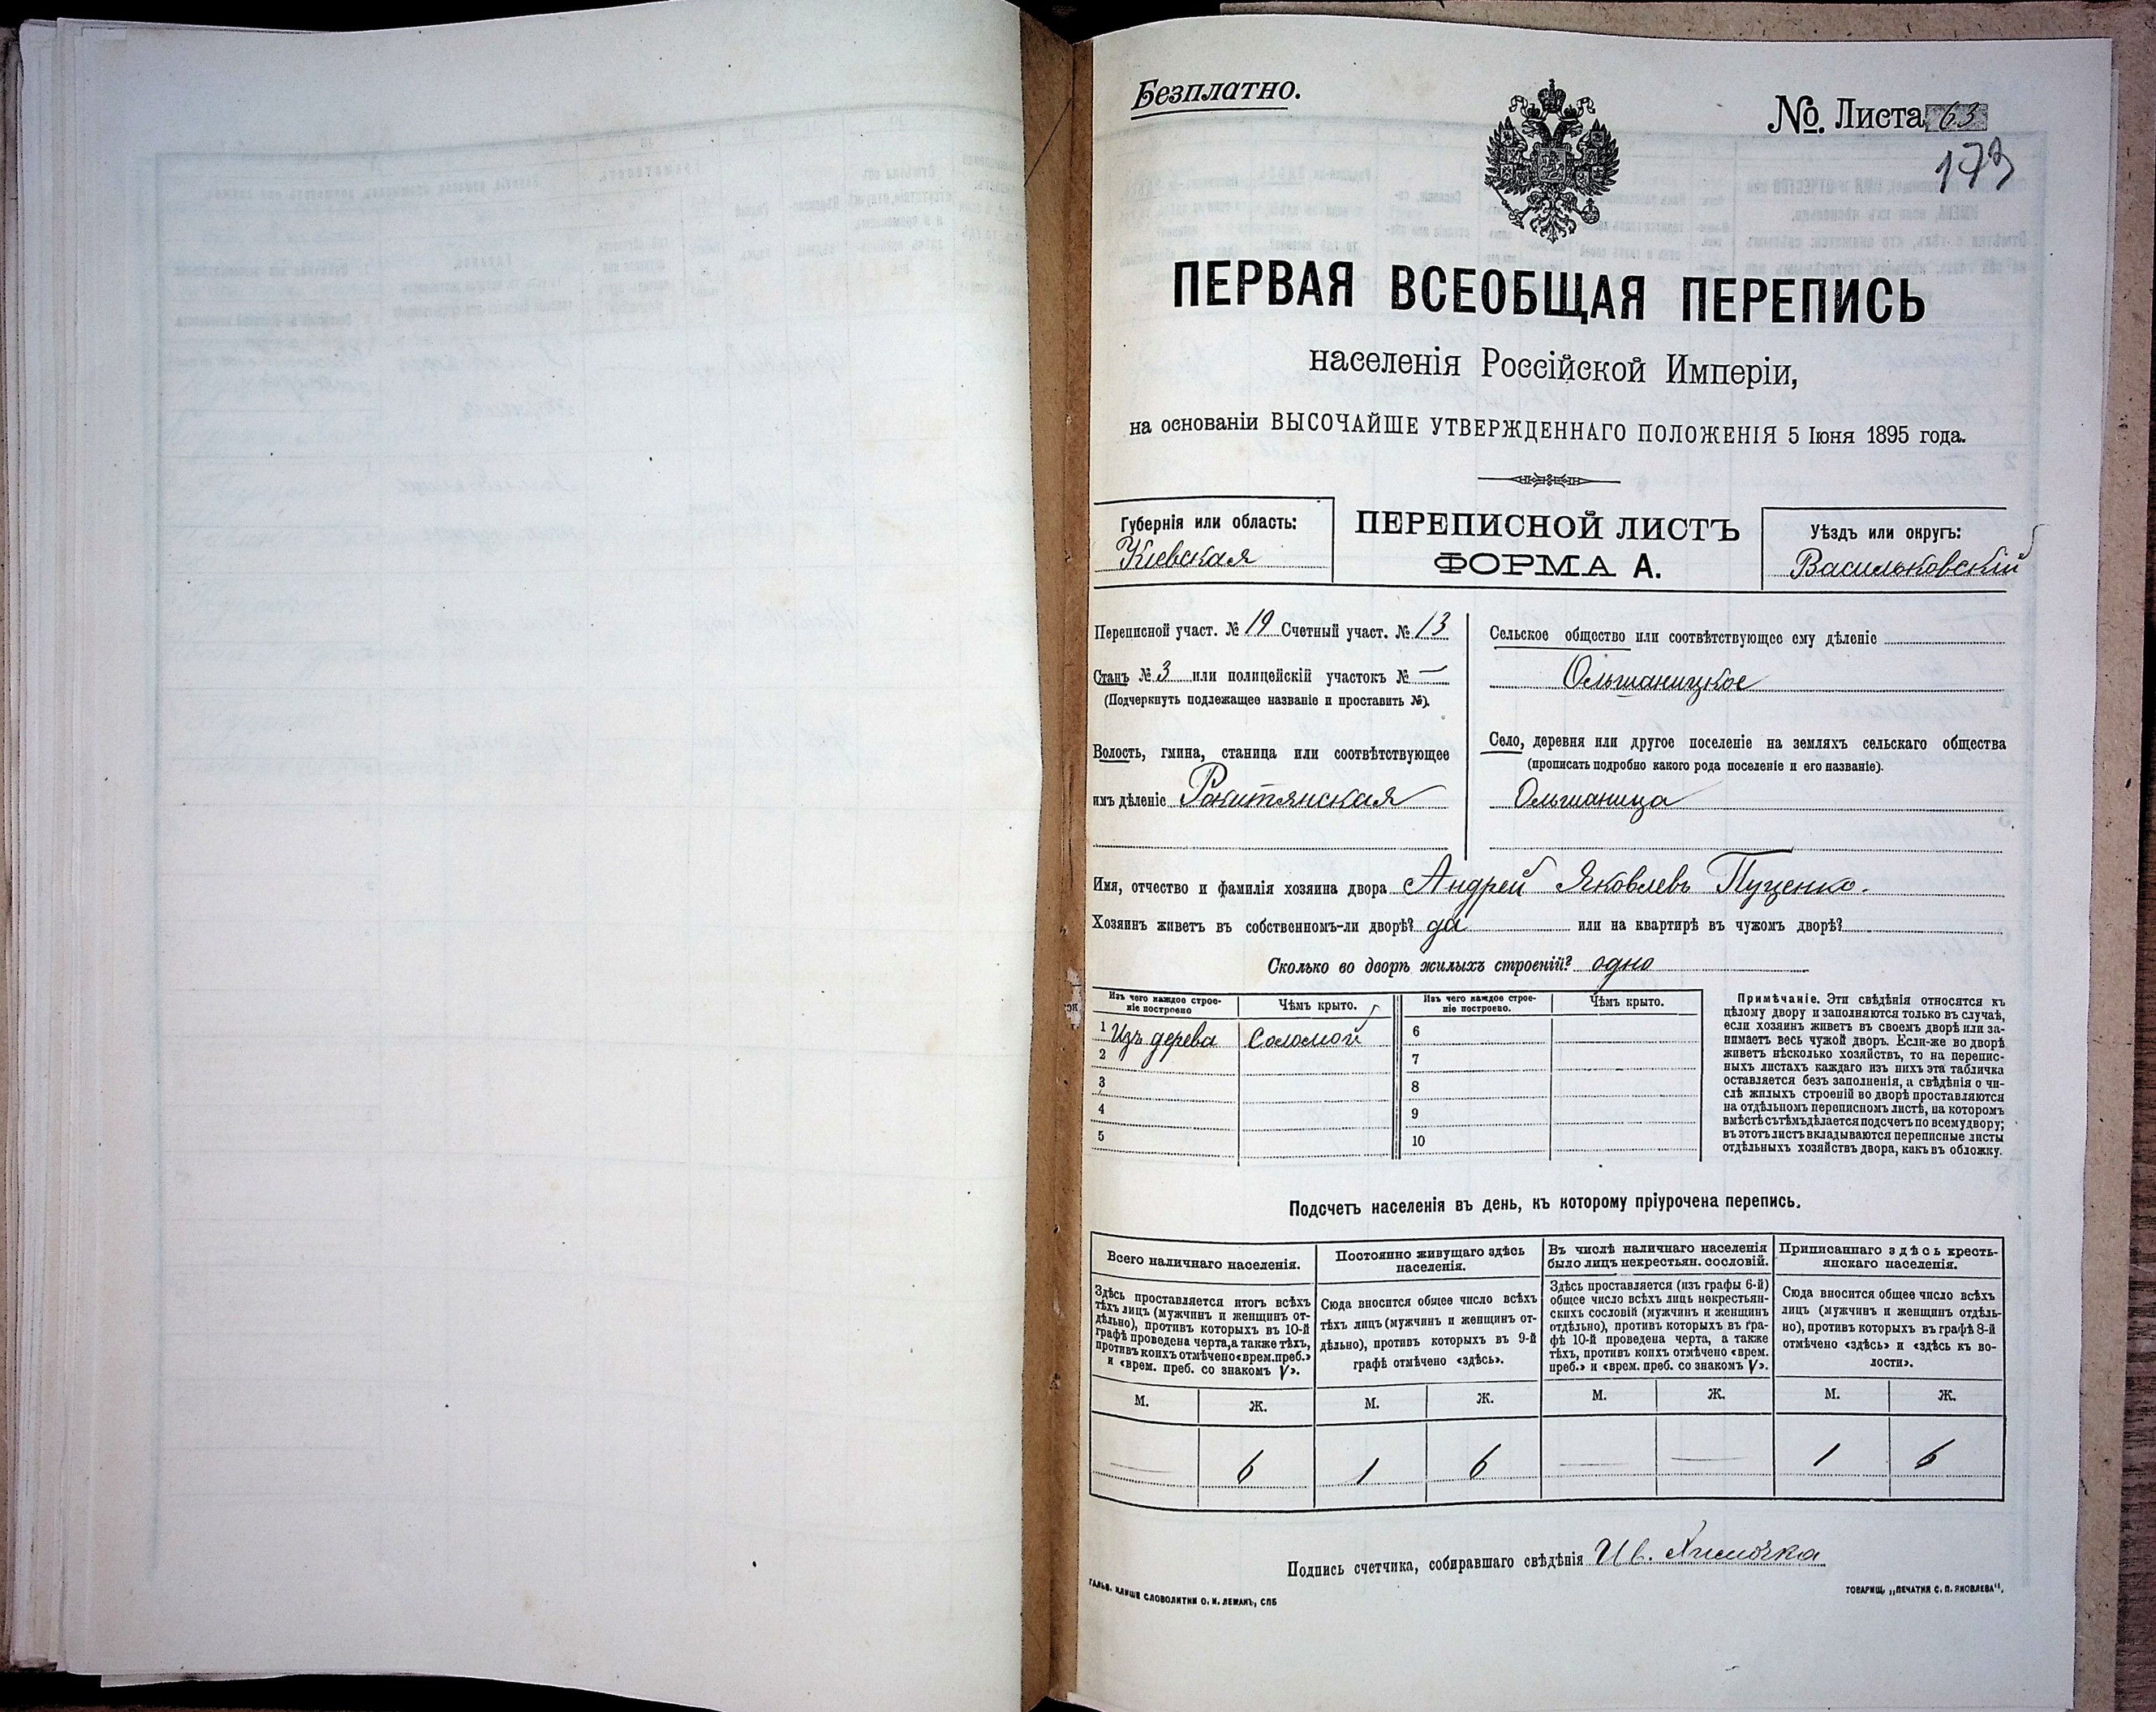 Безплатно.
№. Листа 63
173
ПЕРВАЯ ВСЕОБЩАЯ ПЕРЕПИСЬ
населенія Россійской Имперіи,
на основаніи ВЫСОЧАЙШЕ УТВЕРЖДЕННАГО ПОЛОЖЕНІЯ 5 Іюня 1895 года.
Губернія или область:
Кіевская
ПЕРЕПИСНОЙ ЛИСТЪ
ФОРМА А.
Уѣздъ или округъ:
Васильковскій
Переписной участ. № 19 Счетный участ. № 13
Станъ № 3 или полицейскій участокъ № —
(Подчеркнуть подлежащее названіе и проставить №).
Волость, гмина, станица или соотвѣтствующее
имъ дѣленіе Рокитянская
Сельское общество или соотвѣтствующее ему дѣленіе
Ольшаницкое
Село, деревня или другое поселеніе на земляхъ сельскаго общества
(прописать подробно какого рода поселеніе и его названіе).
Ольшаница
Имя, отчество и фамилія хозяина двора Андрей Яковлевъ Пуценко.
Хозяинъ живетъ въ собственномъ-ли дворѣ? да или на квартирѣ въ чужомъ дворѣ?
Сколько во дворѣ жилыхъ строеній? одно
Изъ чего каждое строе-
ніе построено
Чѣмъ крыто.
Изъ чего каждое строе-
ніе построено.
Чѣмъ крыто.
1 Изъ дерева Соломой
2
3
4
5
6
7
8
9
10
Примѣчаніе. Эти свѣдѣнія относятся къ
цѣлому двору и заполняются только въ случаѣ,
если хозяинъ живетъ въ своемъ дворѣ или за-
нимаетъ весь чужой дворъ. Если-же во дворѣ
живетъ нѣсколько хозяйствъ, то на перепис-
ныхъ листахъ каждаго изъ нихъ эта табличка
оставляется безъ заполненія, а свѣдѣнія о чи-
слѣ жилыхъ строеній во дворѣ проставляются
на отдѣльномъ переписномъ листѣ, на которомъ
вмѣстѣ съ тѣмъ дѣлается подсчетъ по всему двору;
въ этотъ листъ вкладываются переписные листы
отдѣльныхъ хозяйствъ двора, какъ въ обложку.
Подсчетъ населенія въ день, къ которому пріурочена перепись.
Всего наличнаго населенія.
Здѣсь проставляется итогъ всѣхъ
тѣхъ лицъ (мужчинъ и женщинъ от-
дѣльно), противъ которыхъ въ 10-й
графѣ проведена черта, а также тѣхъ,
противъ коихъ отмѣчено «врем. преб.»
и «врем. преб. со знакомъ V».
Постоянно живущаго здѣсь
населенія.
Сюда вносится общее число всѣхъ
тѣхъ лицъ (мужчинъ и женщинъ от-
дѣльно), противъ которыхъ въ 9-й
графѣ отмѣчено «здѣсь».
Въ числѣ наличнаго населенія
было лицъ некрестьян. сословій.
Здѣсь проставляется (изъ графы 6-й)
общее число всѣхъ лицъ некрестьян-
скихъ сословій (мужчинъ и женщинъ
отдѣльно), противъ которыхъ въ гра-
фѣ 10-й проведена черта, а также
тѣхъ, противъ коихъ отмѣчено «врем.
преб.» и «врем. преб. со знакомъ V».
Приписаннаго здѣсь кресть-
янскаго населенія.
Сюда вносится общее число всѣхъ
лицъ (мужчинъ и женщинъ отдѣль-
но), противъ которыхъ въ графѣ 8-й
отмѣчено «здѣсь» и «здѣсь къ во-
лости».
М. Ж. М. Ж. М. Ж. М. Ж.
— 6 1 6 — — 1 6
Подпись счетчика, собиравшаго свѣдѣнія Ив. Химочка
ГАЛЬВ. КЛИШЕ СЛОВОЛИТНИ О. И. ЛЕМАНЪ, СПБ
ТОВАРИЩ. „ПЕЧАТНЯ С. П. ЯКОВЛЕВА".